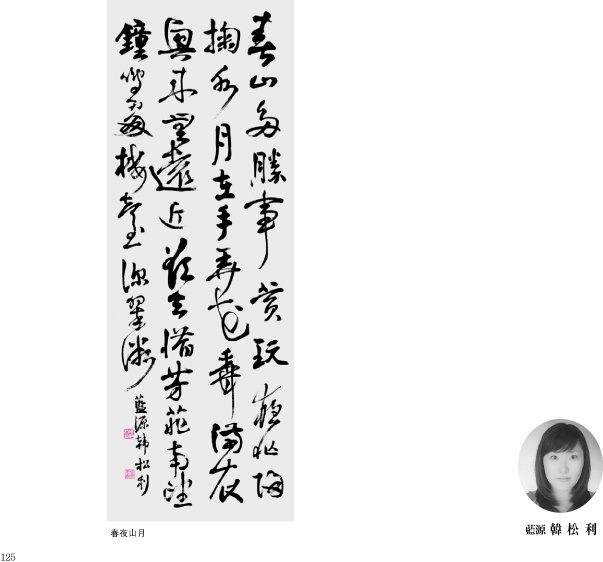 春山多勝事賞玩夜忘歸
掬水月在手弄花香滿衣
興來無遠近欲去惜芳菲南望
鐘鳴處樓臺深翠微
藍源韓松利
春夜山月
藍源 韓松利
125